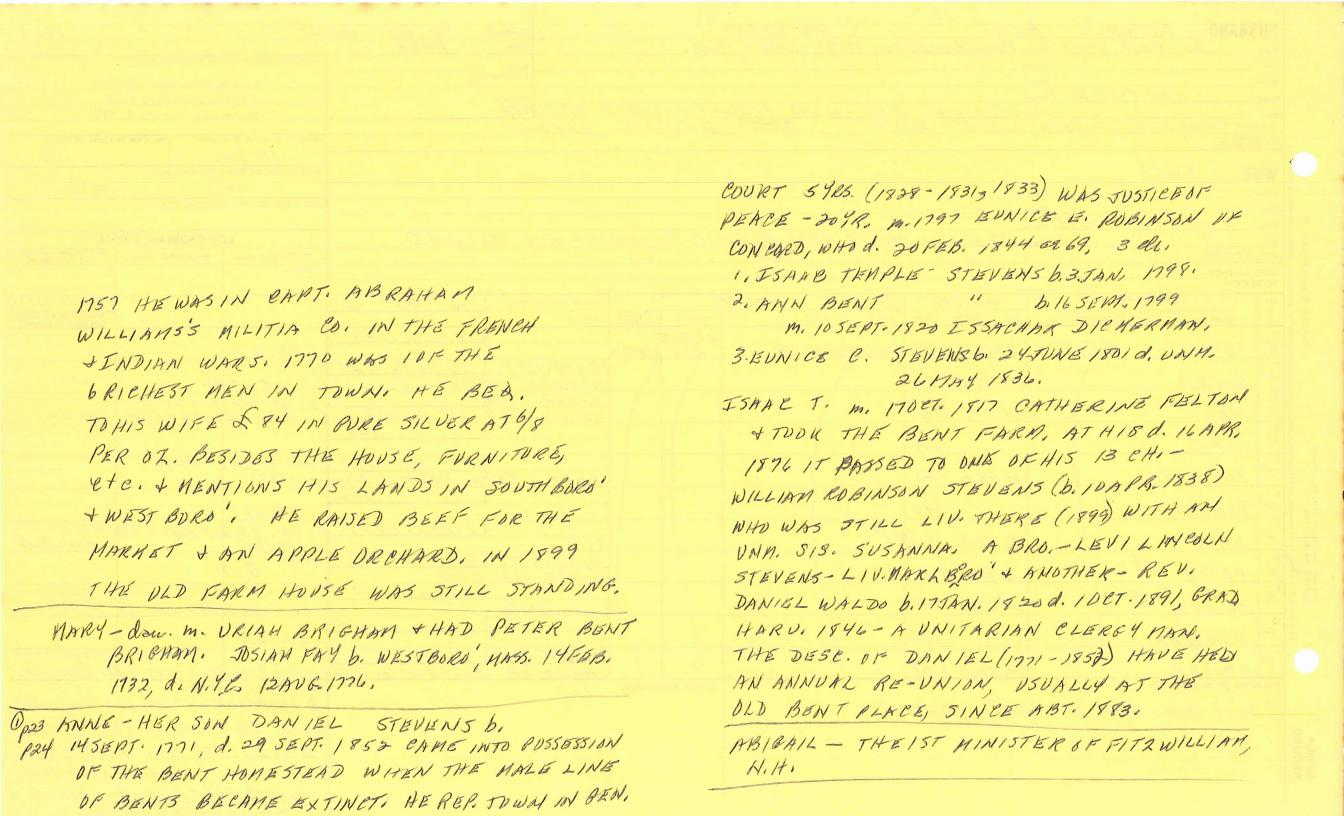 1757 HE WAS IN CAPT. ABRAHAM
WILLIAMS'S MILITIA CO. IN THE FRENCH
& INDIAN WARS. 1770 WAS 1 OF THE
6 RICHEST MEN IN TOWN. HE BEQ.
TO HIS WIFE £84 IN PURE SILVER AT 6/8
PER OZ. BESIDES THE HOUSE, FURNITURE,
etc. & MENTIONS HIS LANDS IN SOUTHBORO'
& WESTBORO'. HE RAISED BEEF FOR THE
MARKET & AN APPLE ORCHARD. IN 1899
THE OLD FARM HOUSE WAS STILL STANDING.
MARY - dau. m. URIAH BRIGHAM & HAD PETER BENT
BRIGHAM. JOSIAH FAY b. WESTBORO', MASS. 14 FEB.
1732, d. N.Y.C. 12 AUG. 1776.
① p23 ANNE - HER SON DANIEL STEVENS b.
p24 14 SEPT. 1771, d. 29 SEPT. 1852 CAME INTO POSSESSION
OF THE BENT HOMESTEAD WHEN THE MALE LINE
OF BENTS BECAME EXTINCT. HE REP. TOWN IN GEN.
COURT 5 YRS. (1828-1831, 1833) WAS JUSTICE OF
PEACE - 20 YR. m. 1797 EUNICE E. ROBINSON OF
CONCORD, WHO d. 20 FEB. 1844 ae 69, 3 ch.
1. ISAAB TEMPLE STEVENS b. 3 JAN. 1798.
2. ANN BENT " b. 16 SEPT. 1799
m. 10 SEPT. 1820 ISSACHAR DICKERMAN.
3. EUNICE C. STEVENS b. 24 JUNE 1801 d. UNM.
26 MAY 1836.
ISAAC T. m. 17 OCT. 1817 CATHERINE FELTON
& TOOK THE BENT FARM. AT HIS d. 16 APR.
1876 IT PASSED TO ONE OF HIS 13 CH. -
WILLIAM ROBINSON STEVENS (b. 10 APR. 1838)
WHO WAS STILL LIV. THERE (1899) WITH AN
UNM. SIS. SUSANNA. A BRO. - LEVI LINCOLN
STEVENS - LIV. MARLBORO' & ANOTHER - REV.
DANIEL WALDO b. 17 JAN. 1820 d. 1 OCT. 1891, GRAD
HARV. 1846 - A UNITARIAN CLERGYMAN.
THE DESC. OF DANIEL (1771-1852) HAVE HELD
AN ANNUAL RE-UNION, USUALLY AT THE
OLD BENT PLACE, SINCE ABT. 1883.
ABIGAIL - THE 1ST MINISTER OF FITZWILLIAM,
N.H.